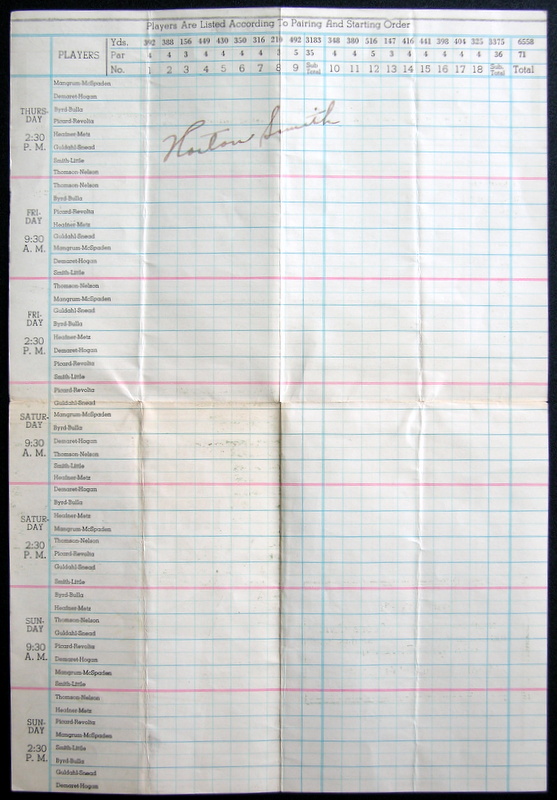 Players Are Listed According To Pairing And Starting Order
PLAYERS
Yds. 392 388 156 449 430 350 316 210 492 3183 348 380 516 147 416 441 398 404 325 3375 6558
Par 4 4 3 4 4 4 4 3 5 35 4 4 5 3 4 4 4 4 4 36 71
No. 1 2 3 4 5 6 7 8 9 Sub Total 10 11 12 13 14 15 16 17 18 Sub. Total Total
Horton Smith
THURS-
DAY
2:30
P. M.
Mangrum-McSpaden
Demaret-Hogan
Byrd-Bulla
Picard-Revolta
Heafner-Metz
Guldahl-Snead
Smith-Little
Thomson-Nelson
FRI-
DAY
9:30
A. M.
Thomson-Nelson
Byrd-Bulla
Picard-Revolta
Heafner-Metz
Guldahl-Snead
Mangrum-McSpaden
Demaret-Hogan
Smith-Little
FRI-
DAY
2:30
P. M.
Thomson-Nelson
Mangrum-McSpaden
Guldahl-Snead
Byrd-Bulla
Heafner-Metz
Demaret-Hogan
Picard-Revolta
Smith-Little
SATUR-
DAY
9:30
A. M.
Picard-Revolta
Guldahl-Snead
Mangrum-McSpaden
Byrd-Bulla
Demaret-Hogan
Thomson-Nelson
Smith-Little
Heafner-Metz
SATUR-
DAY
2:30
P. M.
Demaret-Hogan
Byrd-Bulla
Heafner-Metz
Mangrum-McSpaden
Thomson-Nelson
Picard-Revolta
Guldahl-Snead
Smith-Little
SUN-
DAY
9:30
A. M.
Byrd-Bulla
Heafner-Metz
Thomson-Nelson
Guldahl-Snead
Picard-Revolta
Demaret-Hogan
Mangrum-McSpaden
Smith-Little
SUN-
DAY
2:30
P. M.
Thomson-Nelson
Heafner-Metz
Picard-Revolta
Mangrum-McSpaden
Smith-Little
Byrd-Bulla
Guldahl-Snead
Demaret-Hogan